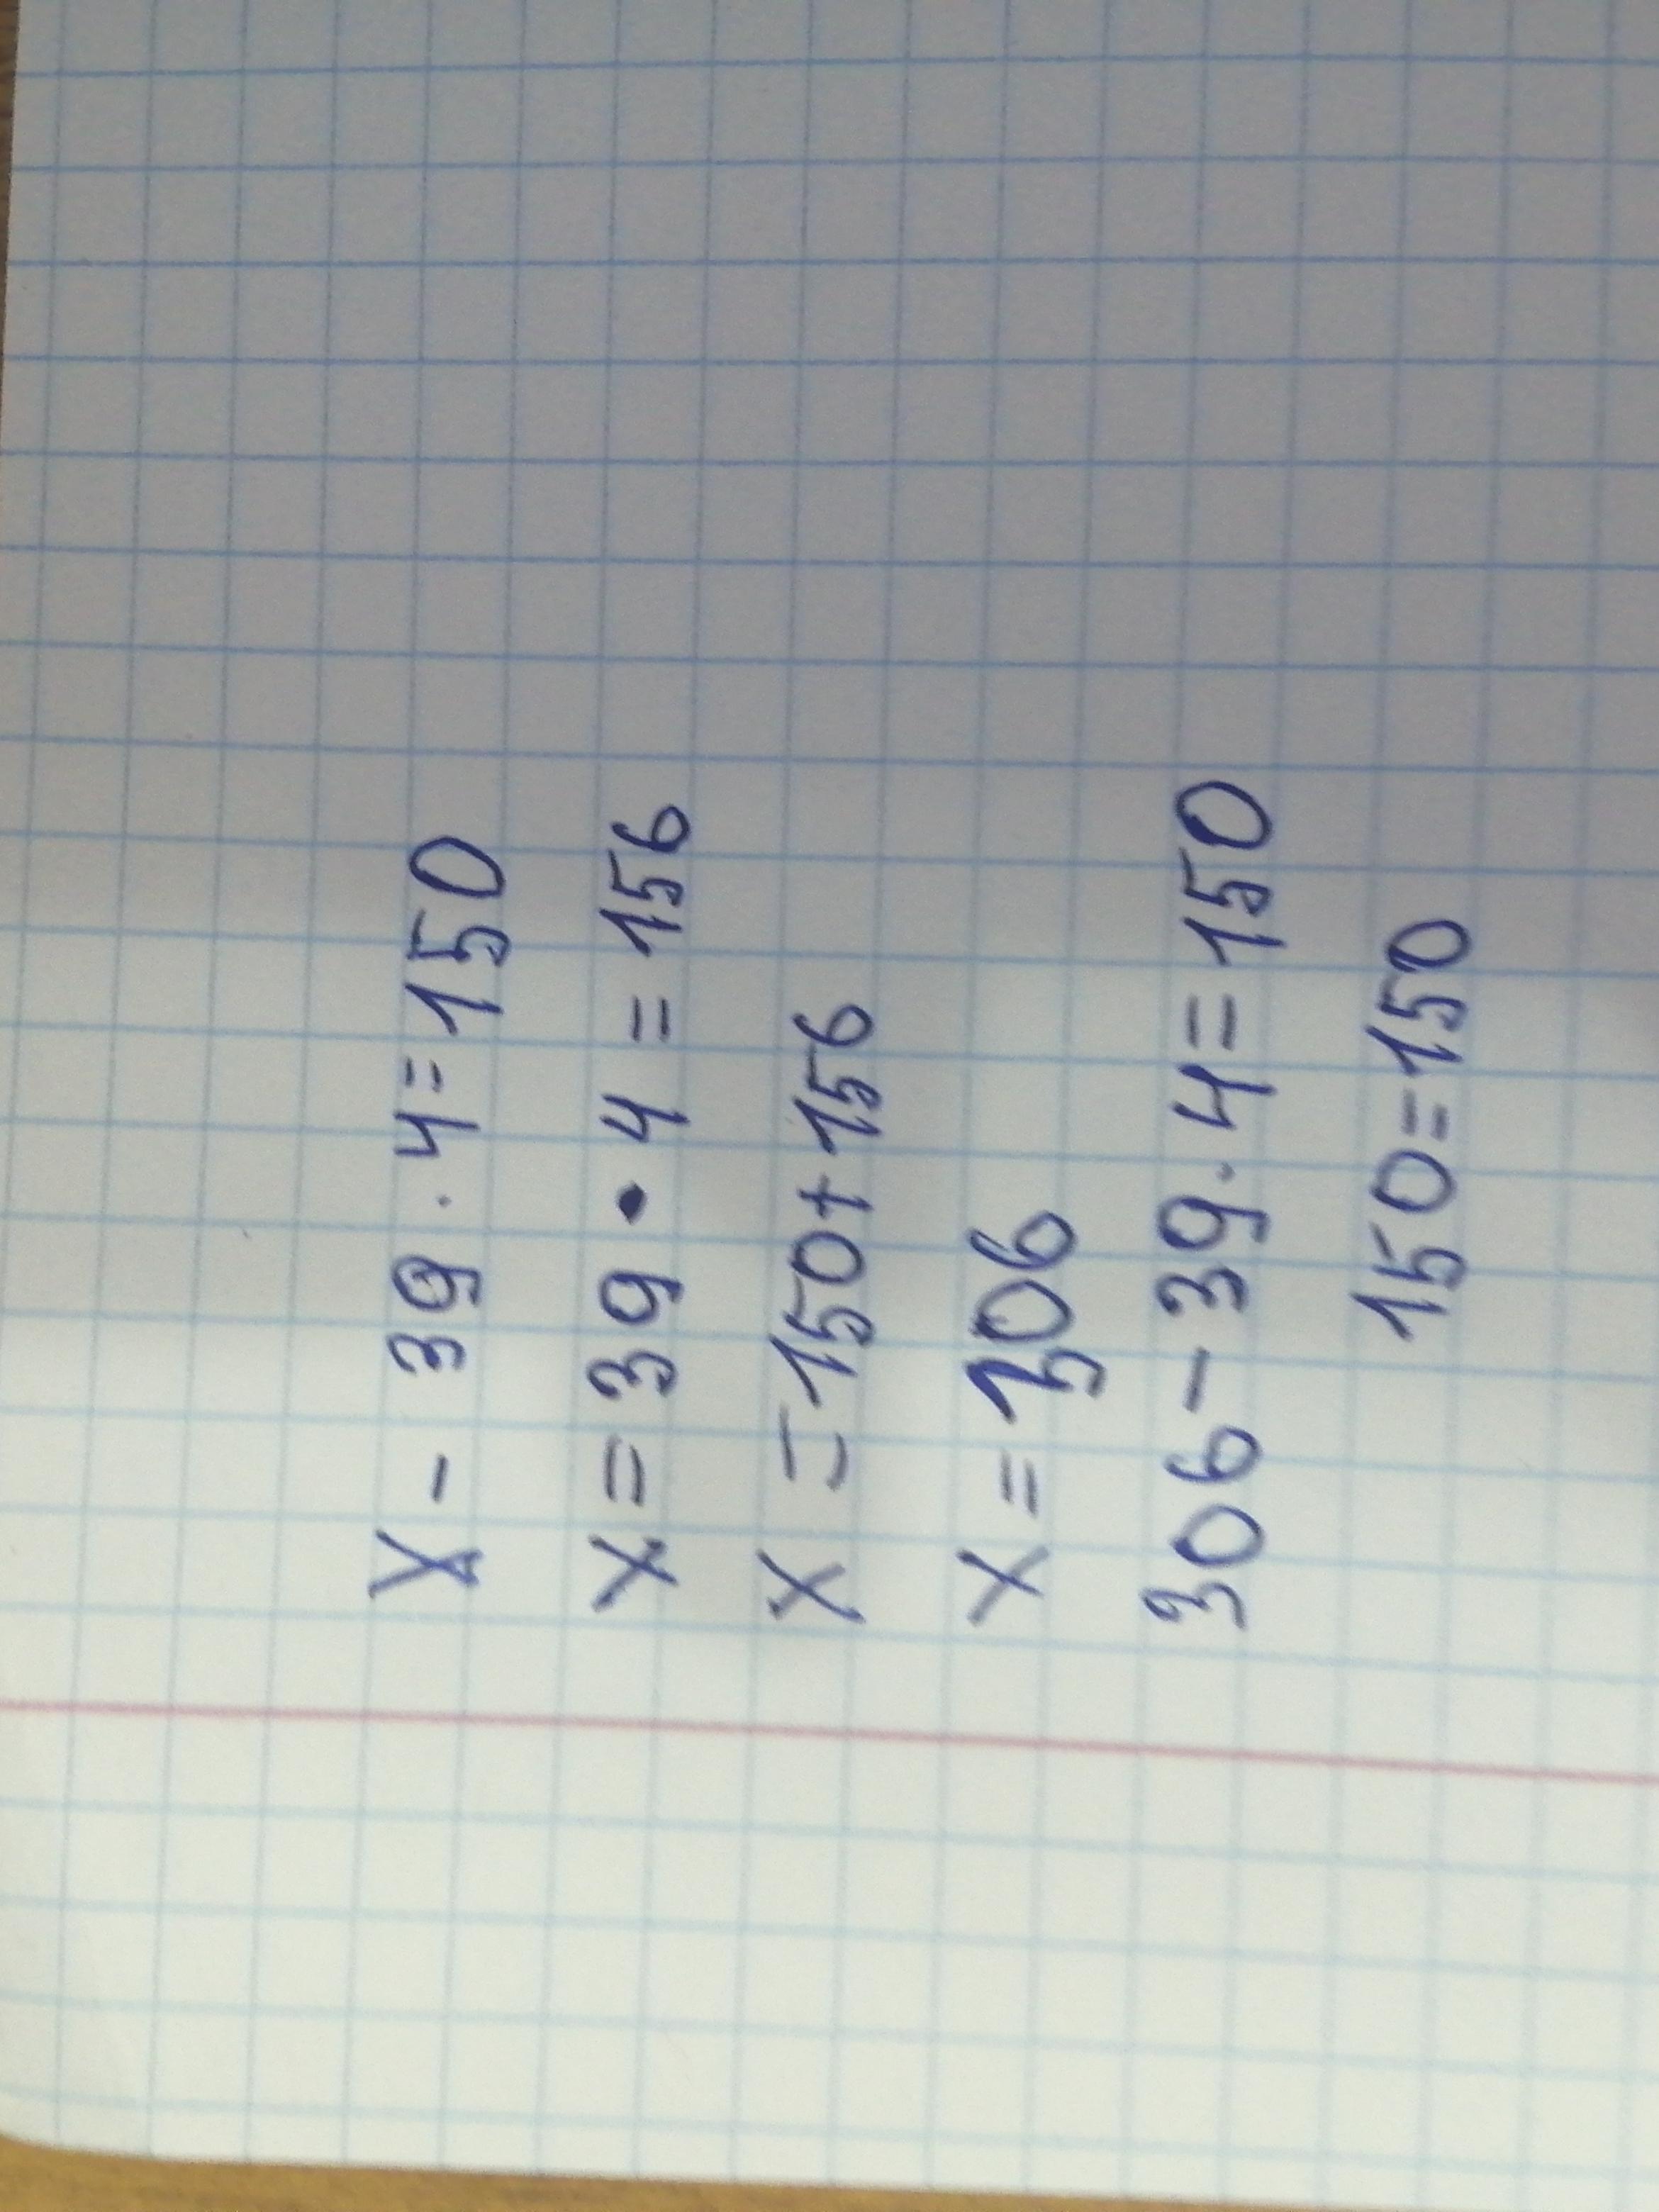 X - 39 · 4 = 150
X = 39 · 4 = 156
X = 150 + 156
X = 306
306 - 39 · 4 = 150
150 = 150